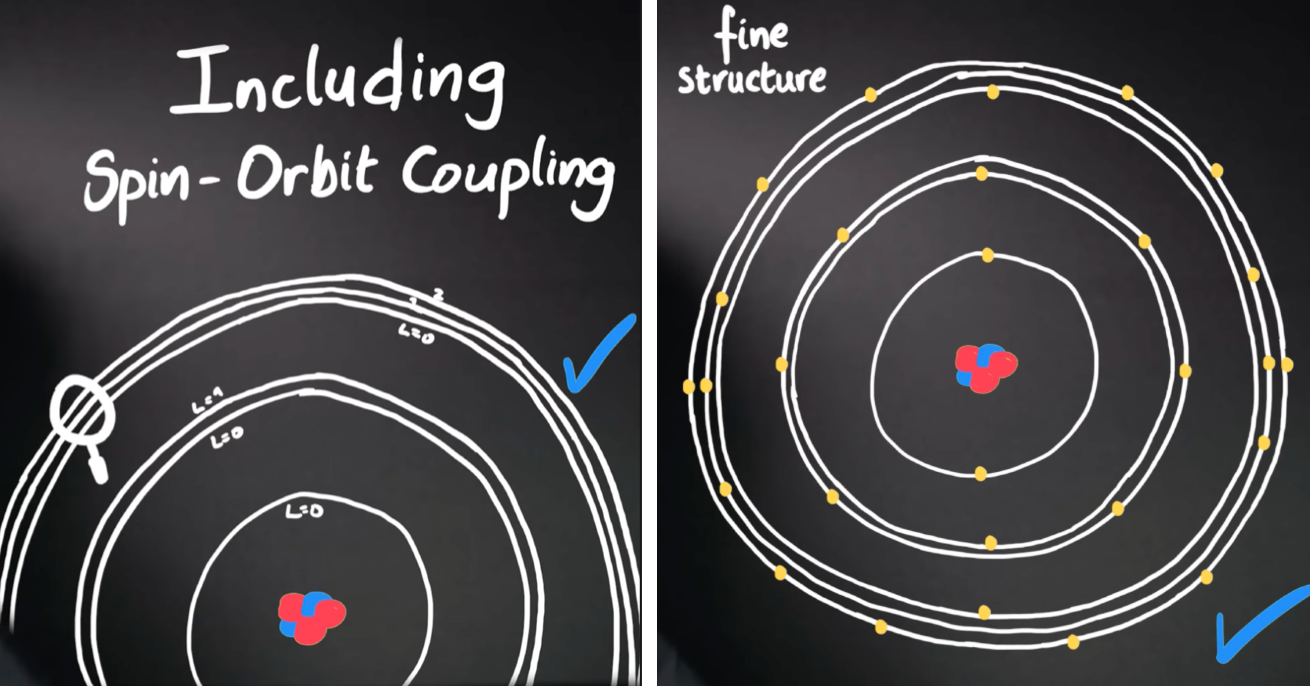 Including
Spin-Orbit Coupling
2
1
L=0
L=1
L=0
L=0
fine
structure